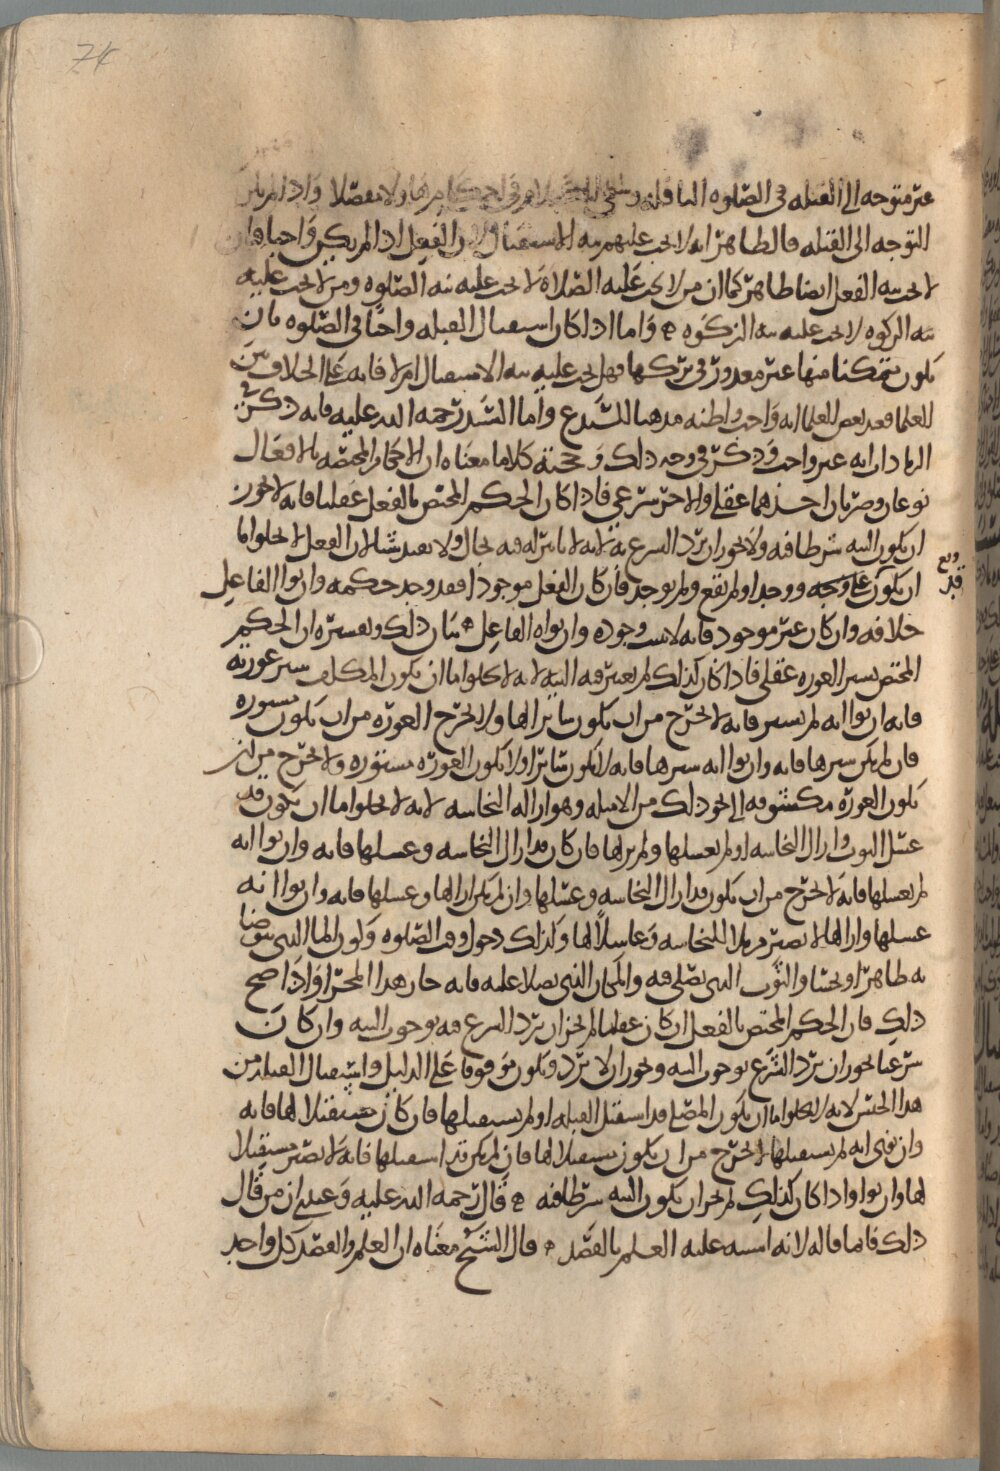 74
غير متوجه إلى القبله فى الصلوه النافله ولا مفصلا وإذا لم يكن
التوجه إلى القبله فالظاهر انه لا يجب عليهم نيه الاستقبال لان الفعل اذا لم يكن واجبا فان
لا يجب نيه الفعل ايضا ظاهر كما ان من لا يجب عليه الصلاة لا يجب عليه نيه الصلوه ومن لا يجب عليه
نيه الزكوه لا يجب عليه نيه الزكوه واما اذا كان استقبال القبله واجبا فى الصلوه بان
يكون متمكنا منها غير معذور فى تركها فهل يجب عليه نيه الاستقبال ام لا فانه على الخلاف بين
العلما فعند بعض العلما انه واجب واظنه مذهبا للشرع واما السيد رحمه الله عليه فانه ذكر فى
الزيادات انه غير واجب وذكر فى وجه ذلك وحجته كلاما معناه ان الاحكام المختصه بالافعال
نوعان وضربان احدهما عقلى والاخر شرعى فاذا كان الحكم المختص بالفعل عقليا فانه لا يجوز
ان يكون النيه شرطا فيه ولا يجوز ان يرد الشرع به لانه لا تاثير له فيه بحال ولا يفيد شيا لان الفعل لا يخلوا اما
ان يكون على وجه ووجد او لم يقع ولم يوجد فان كان الفعل موجودا فقد وجد حكمه وان نوا الفاعل
وقع
قد
خلافه وان كان غير موجود فانه لا يثبت وجوده وان نواه الفاعل بيان ذلك وتفسيره ان الحكم
المختص بستر العوره عقلى فاذا كان كذلك لم يعتبر فيه النيه لانه لا يخلوا اما ان يكون المكلف ستر عورته
فانه ان نوا انه لم يستر فانه لا يخرج من ان يكون ساترا لها ولا يخرج العوره من ان يكون مستوره
فان لم يكن سترها فانه وان نوا انه سترها فانه لا يكون ساترا ولا يكون العوره مستوره ولا يخرج من ان
يكون العوره مكشوفه إلى نحو ذلك من الامثله وهو ازاله النجاسه لانه لا يخلوا اما ان يكون قد
غسل الثوب وازال النجاسه او لم يغسلها ولم يزلها فان كان قد ازال النجاسه وغسلها فانه وان نوا انه
لم يغسلها فانه لا يخرج من ان يكون قد ازال النجاسه وغسلها وان لم يكن ازالها وغسلها فانه وان نوا انه
غسلها وازالها لا يصير مزيلا للنجاسه وغاسلا لها وكذلك دخول وقت الصلوه وكون الما الذى يتوضا
به طاهرا او نجسا والثوب الذى يصلى فيه والمكان الذى يصلا عليه فانه جار هذا المجرا واذا صح
ذلك فان الحكم المختص بالفعل ان كان عقليا لم يجز ان يرد الشرع فيه بوجوب النيه وان كان
شرعيا يجوز ان يرد الشرع بوجوب النيه ويجوز ان لا يرد ويكون موقوفا على الدليل واستقبال القبله من
هذا الجنس لانه لا يخلوا اما ان يكون المصلى قد استقبل القبله او لم يستقبلها فان كان مستقبلا لها فانه
وان نوى انه لم يستقبلها لا يخرج من ان يكون مستقبلا لها فان لم يكن قد استقبلها فانه لا يصير مستقبلا
لها وان نوا واذا كان كذلك لم يجز ان يكون النيه شرطا فيه قال رحمه الله عليه وعندى ان من قال
ذلك فانما قاله لانه اشتبه عليه العلم بالقصد قال الشيخ معناه ان العلم والقصد كل واحد